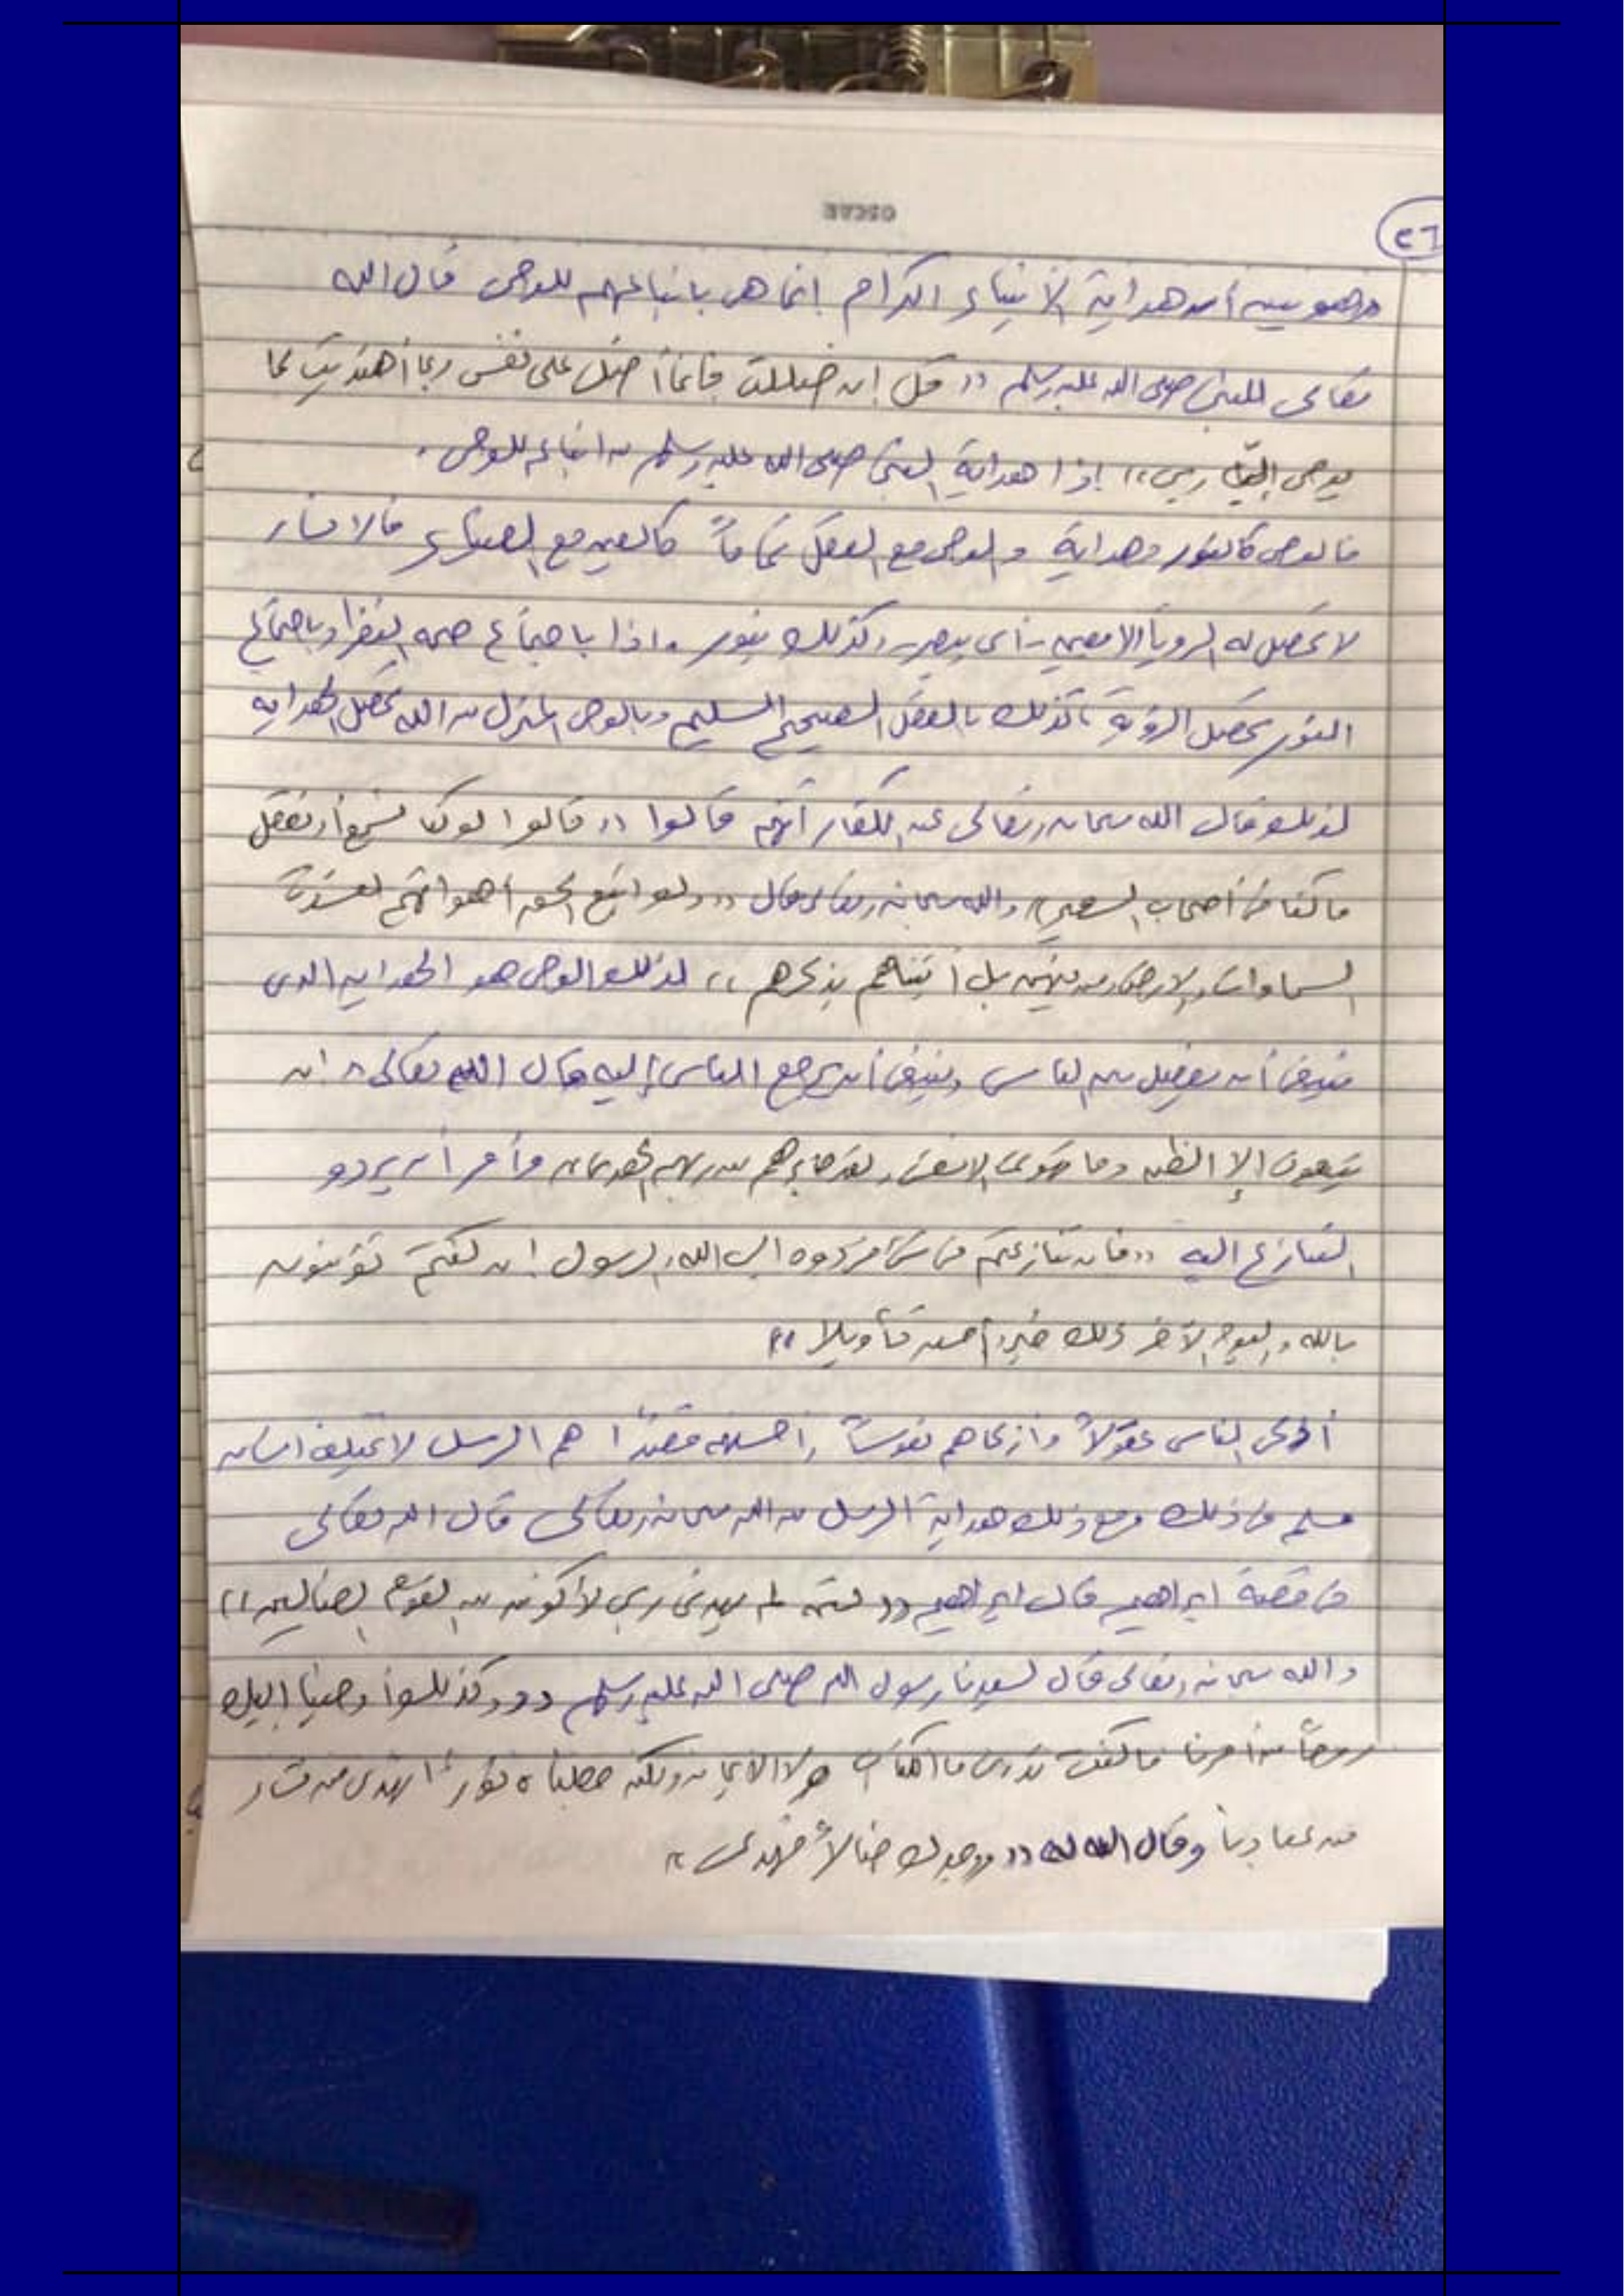 OSCAR
٢٦
وهو يبين أن هداية الأنبياء الكرام إنما هي باتباعهم للوحي قال الله
تعالى للنبي صلى الله عليه وسلم "قل إن ضللت فإنما أضل على نفسي وبما أهتديت بما
يوحى إليّ ربي" إذا هداية النبي صلى الله عليه وسلم من اتباعه للوحي.
فالوحي كالنور وهداية والوحي مع العقل تماماً كالعين مع الضياء فالانسان
لا تحصل له الرويا الا بعين - أي ببصر - وكذلك بنور. اذا باجتماع صحة النظر وباجتماع
النور تحصل الرؤية كذلك بالعقل الصحيح السليم وبالوحي المنزل من الله تحصل الهداية
لذلك قال الله سبحانه وتعالى عن الكفار أنهم قالوا "قالوا لو كنا نسمع أو نعقل
ما كنا في أصحاب السعير" والله سبحانه وتعالى قال "ولو اتبع الحق أهوائهم لفسدت
السماوات والارض ومن فيهن بل أتيناهم بذكرهم" لذلك الوحي هو الهداية الذي
ينبغي أن يفصل بين الناس وينبغي أن يرجع الناس إليه قال الله تعالى "ان
يتبعون إلا الظن وما تهوى الانفس ولقد جاءهم من ربهم الهدى" وأمر أن يردو
التنازع اليه "فان تنازعتم في شيء فردوه الى الله والرسول إن كنتم تؤمنون
بالله واليوم الآخر ذلك خير وأحسن تأويلا"
أذكى الناس عقولاً وأزكاهم نفوساً وأحسنهم قصداً هم الرسل لا يختلف انسان
مسلم في ذلك ومع ذلك هداية الرسل من الله سبحانه وتعالى قال الله تعالى
في قصة ابراهيم قال ابراهيم "لئن لم يهدني ربي لأكونن من القوم الضالين"
والله سبحانه وتعالى قال لسيدنا رسول الله صلى الله عليه وسلم "وكذلك أوحينا إليك
روحاً من أمرنا ما كنت تدري ما الكتاب ولا الايمان ولكن جعلناه نوراً نهدي من نشاء
من عبادنا وقال الله له "ووجدك ضالاً فهدى"